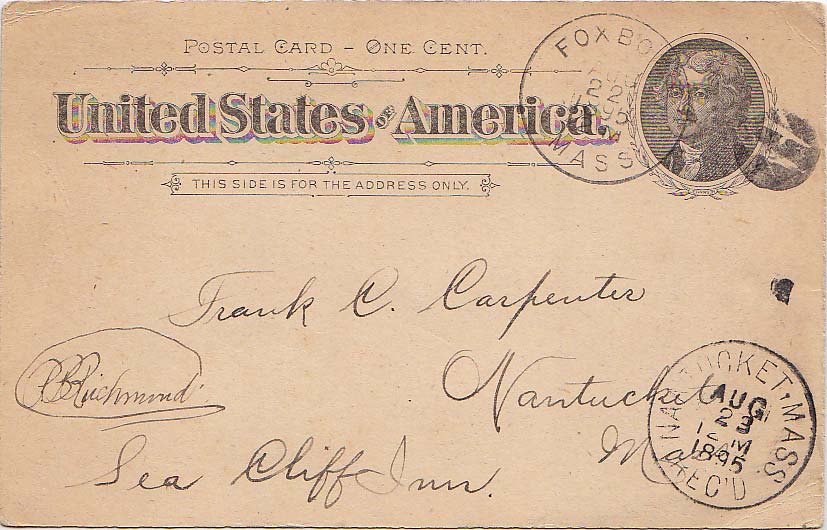 POSTAL CARD – ONE CENT.
United States of America.
THIS SIDE IS FOR THE ADDRESS ONLY.
FOXBO
MASS
Frank C. Carpenter
Nantucket
Mass
Richmond
Sea Cliff Inn.
NANTUCKET, MASS.
AUG
23
12 M
1895
REC'D